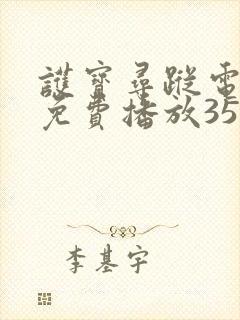 護寶尋蹤電
免費播放35
李基宇